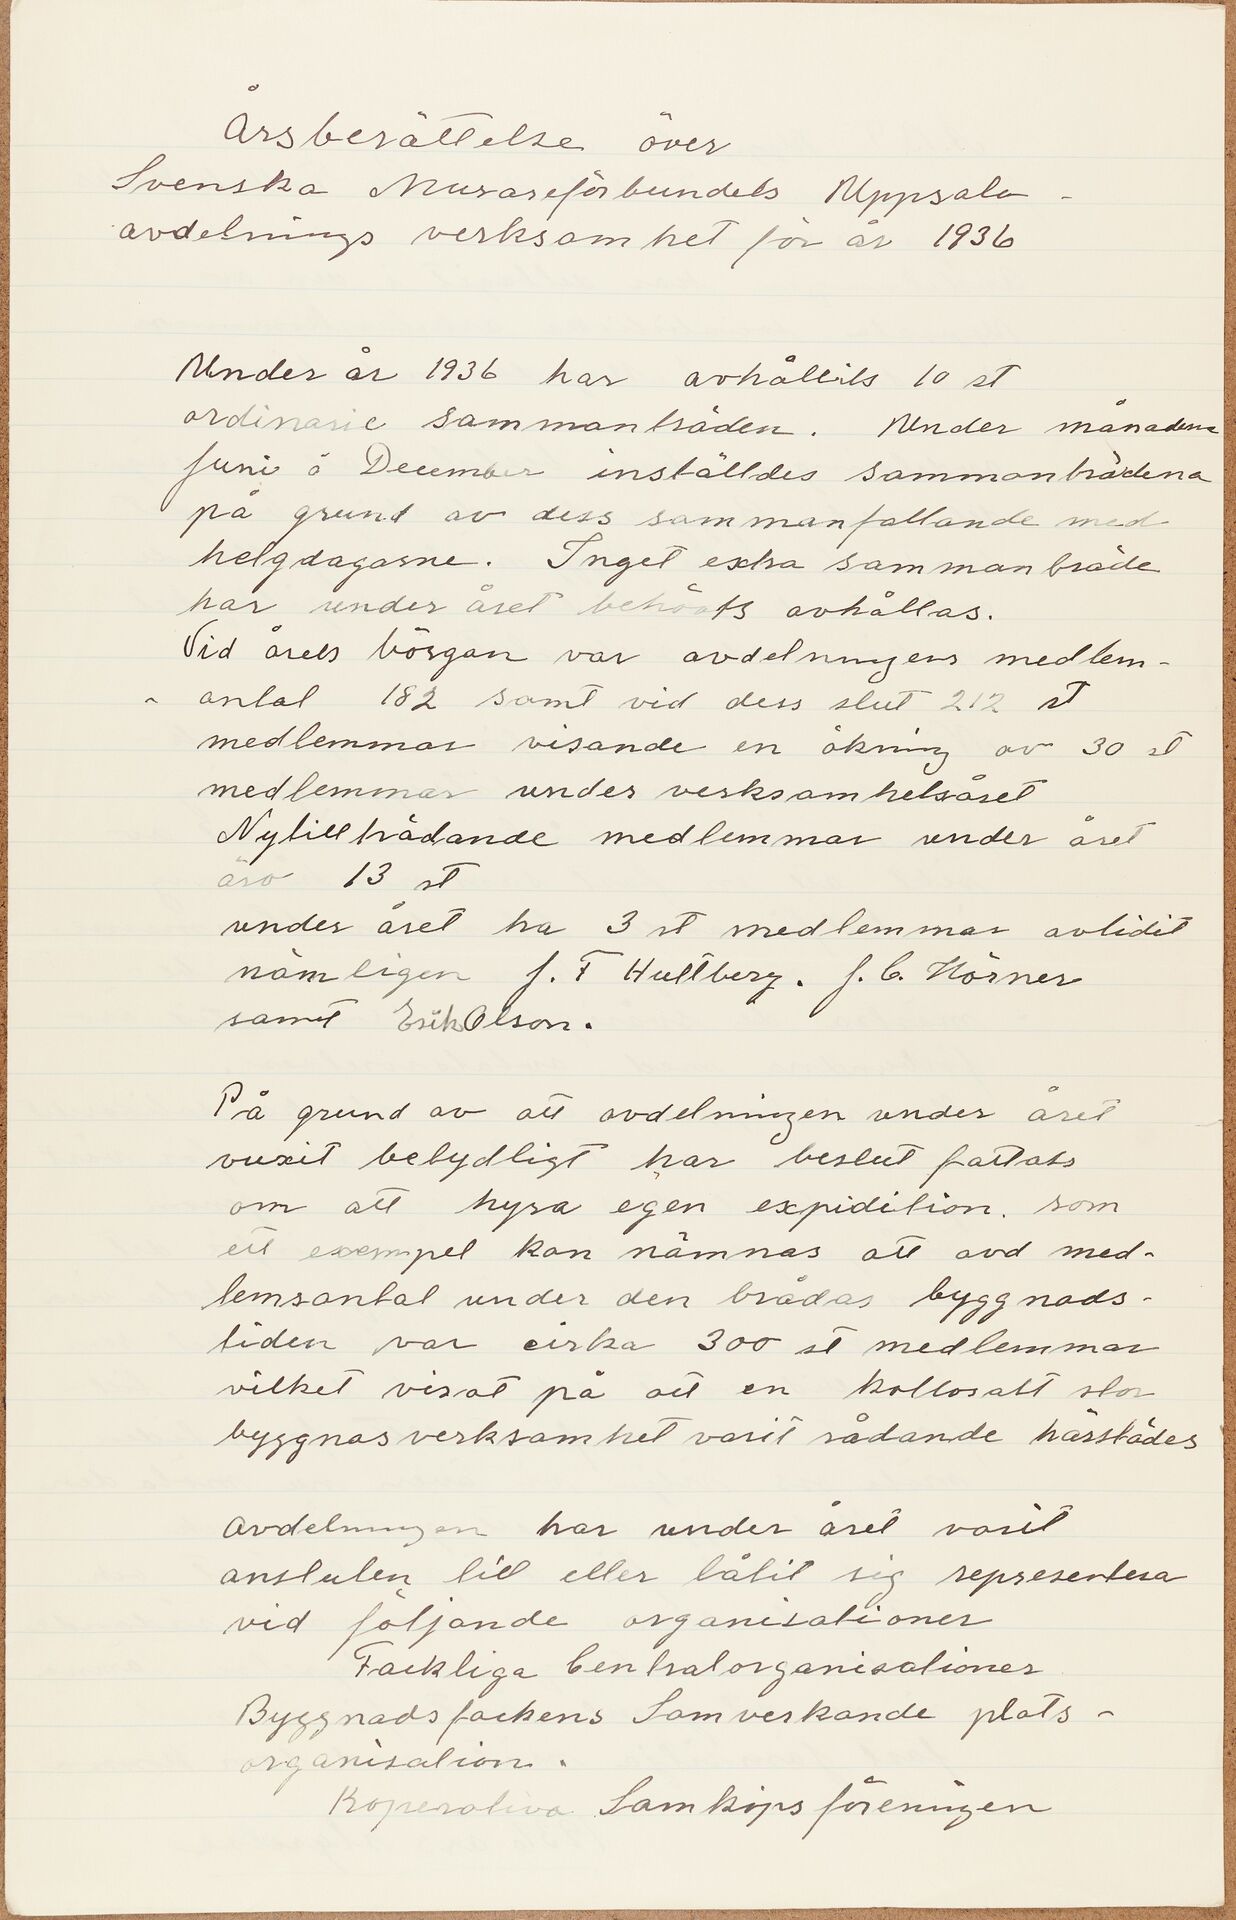 Årsberättelse över
Svenska Murareförbundets Uppsala-
avdelnings verksamhet för år 1936
Under år 1936 har avhållits 10 st
ordinarie sammanträden. Under månaderna
Juni å December inställdes sammanträdena
på grund av dess sammanfallande med
helgdagarne. Inget extra sammanträde
har under året behövts avhållas.
Vid årets börgan var avdelningens medlem-
- antal 182 samt vid dess slut 212 st
medlemmar visande en ökning av 30 st
medlemmar under verksamhetsåret
Nytillträdande medlemmar under året
äro 13 st
under året ha 3 st medlemmar avlidit
nämligen J. F Hultberg. J. C. Hörner
samt Erik Olson.
På grund av att avdelningen under året
vuxit betydligt har beslut fattats
om att hyra egen expidition. som
ett exempel kan nämnas att avd med-
lemsantal under den brådas byggnads-
tiden var cirka 300 st medlemmar
vilket visat på att en kollosalt stor
byggnasverksamhet varit rådande härstädes
Avdelningen har under året varit
ansluten till eller låtit sig representera
vid följande organisationer
Fackliga Centralorganisationer
Byggnadsfackens Samverkande plats-
organisation.
Koperativa Samköpsföreningen